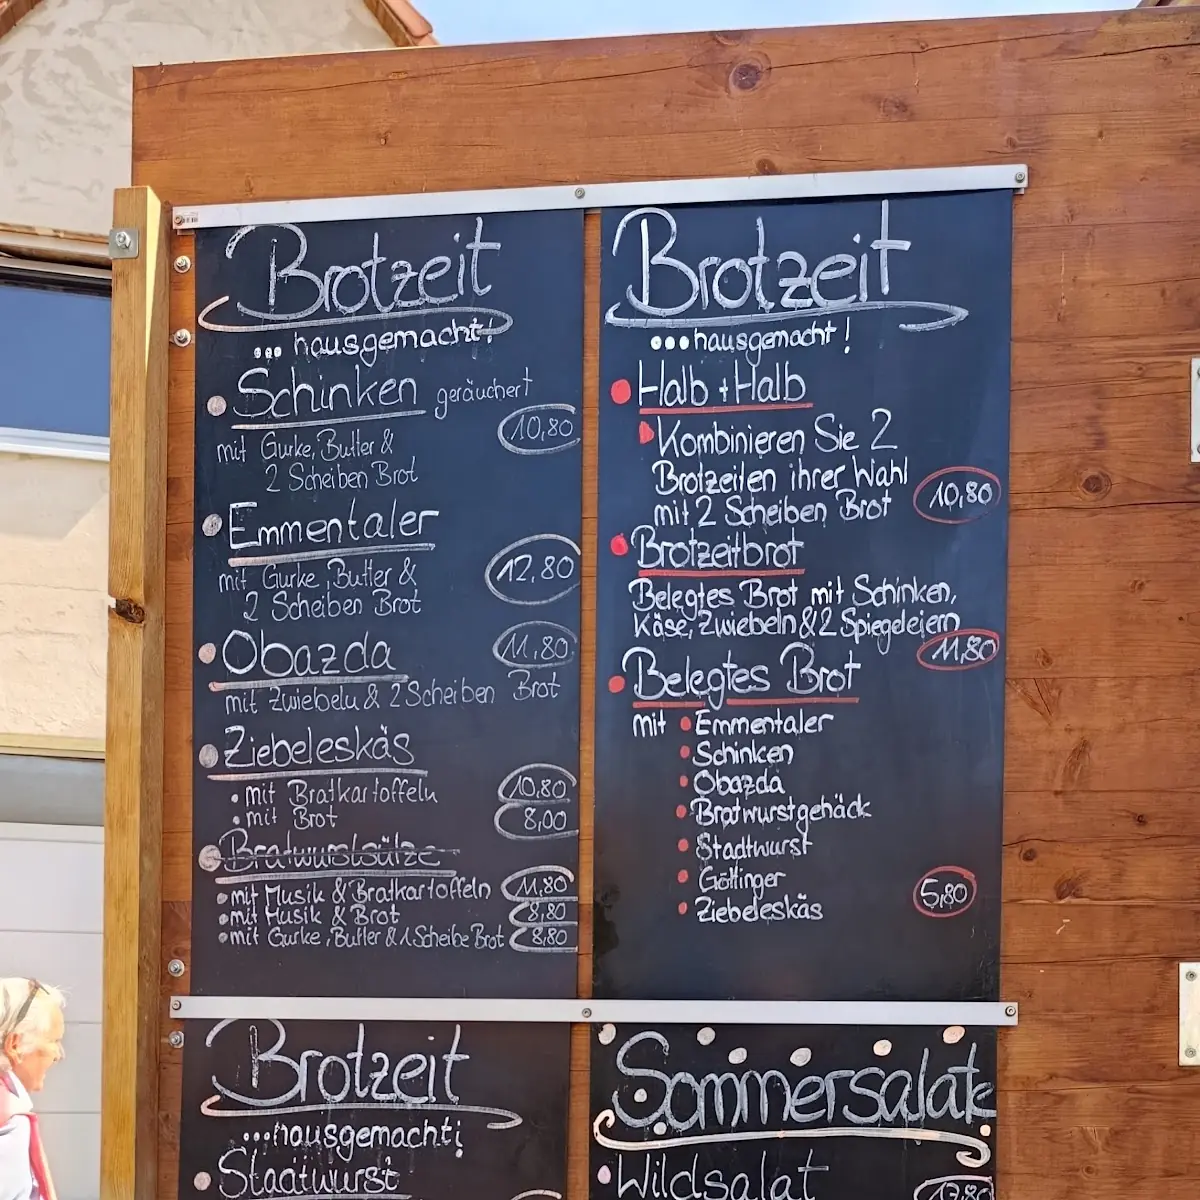 Brotzeit
... hausgemacht!
Schinken geräuchert
10,80
mit Gurke, Butter &
2 Scheiben Brot
Emmentaler
12,80
mit Gurke, Butter &
2 Scheiben Brot
Obazda
11,80
mit Zwiebeln & 2 Scheiben Brot
Ziebeleskäs
• mit Bratkartoffeln 10,80
• mit Brot 8,00
Bratwurstsülze
• mit Musik & Bratkartoffeln 11,80
• mit Musik & Brot 8,80
• mit Gurke, Butter & 1 Scheibe Brot 8,80
Brotzeit
...hausgemacht!
Halb + Halb
Kombinieren Sie 2
Brotzeiten ihrer Wahl
mit 2 Scheiben Brot 10,80
Brotzeitbrot
Belegtes Brot mit Schinken,
Käse, Zwiebeln & 2 Spiegeleiern
11,80
Belegtes Brot
mit • Emmentaler
• Schinken
• Obazda
• Bratwurstgehäck
• Stadtwurst
• Göttinger
• Ziebeleskäs
5,80
Brotzeit
...hausgemacht!
Stadtwurst
Sommersalate
Wildsalat